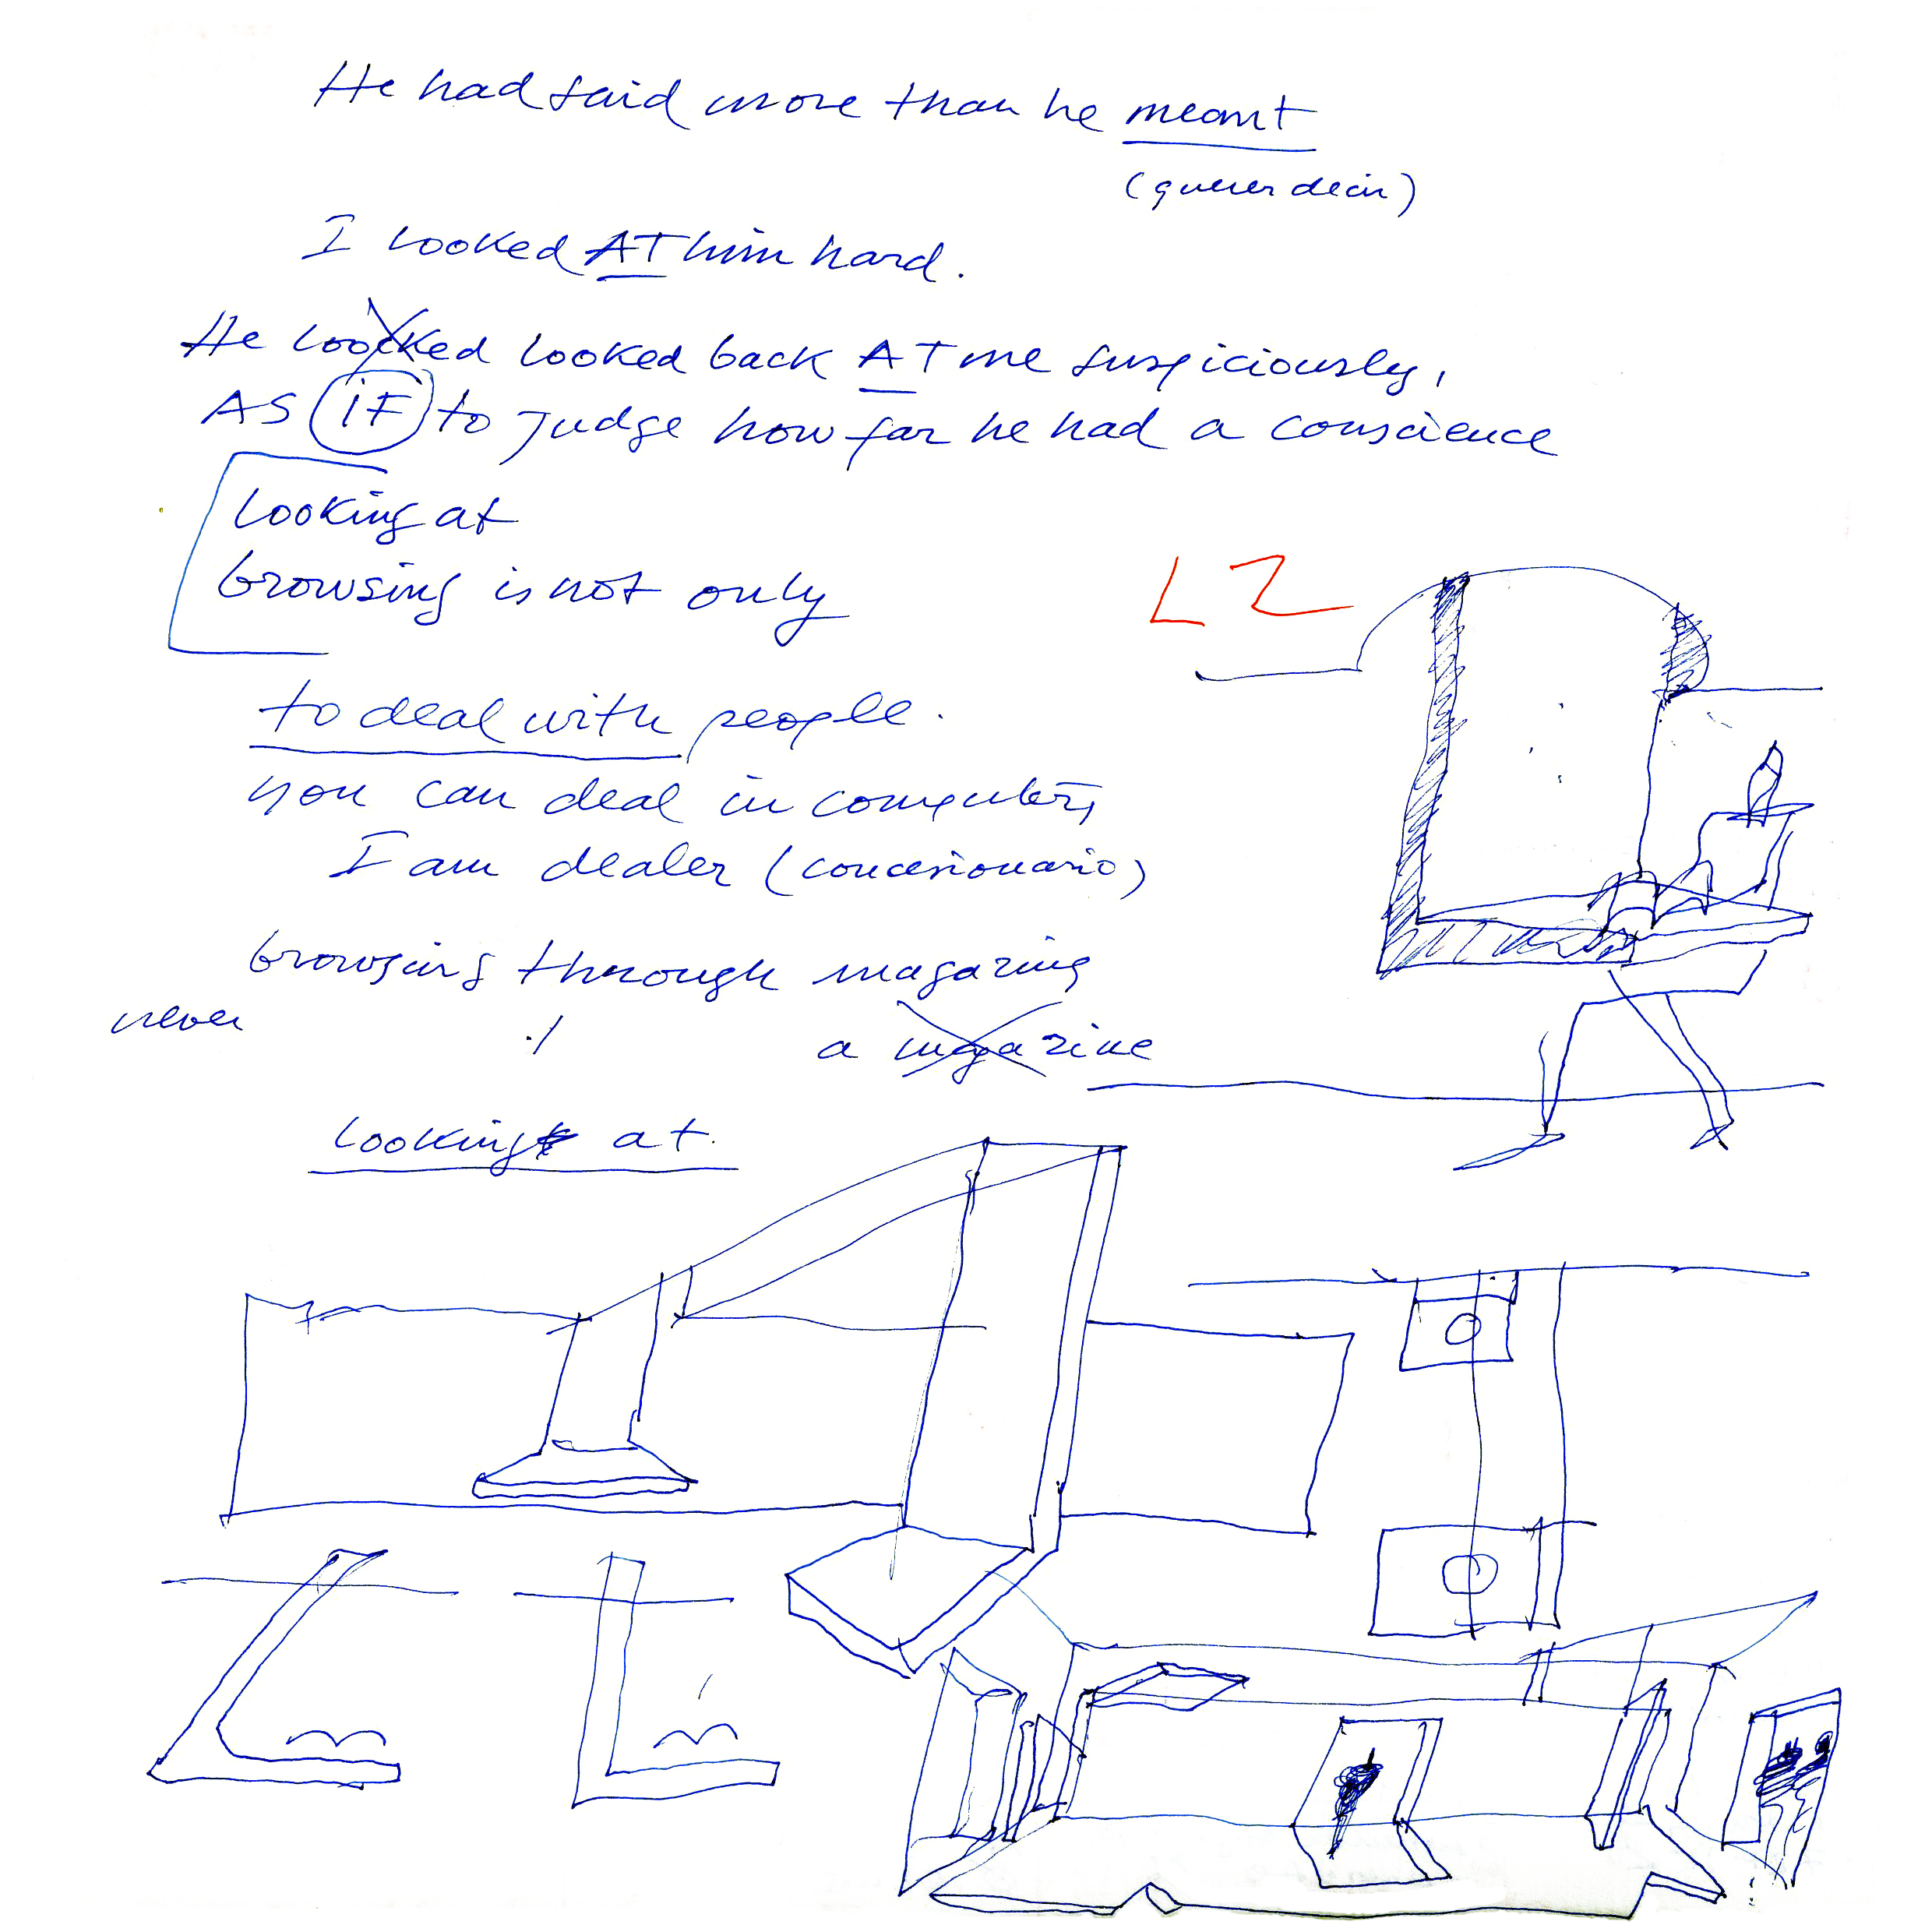 He had said more than he meant
(querer decir)
I looked AT him hard.
He looked looked back AT me suspiciously,
AS iF to judge how far he had a conscience
looking at
browsing is not only
to deal with people.
you can deal in computers
I am dealer (concesionario)
browsing through magazing
never
a magazine
looking at.
LZ